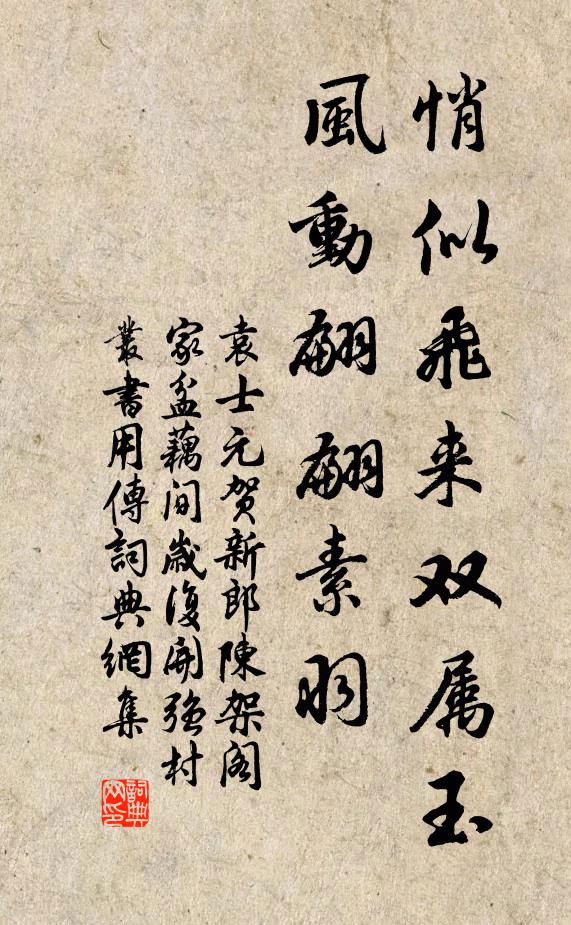 悄似飛来双属玉
風動翩翩素羽
袁士元贺新郎陳架阁
家盆藕间歳復開强村
叢書用傳詞典網集
詞典网印